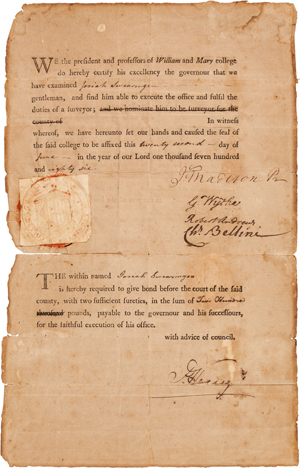 WE the president and professors of William and Mary college
do hereby certify his excellency the governour that we
have examined Josiah Swearingen
gentleman, and find him able to execute the office and fulfil the
duties of a surveyor; and we nominate him to be surveyor for the
county of In witness
whereof, we have hereunto set our hands and caused the seal of
the said college to be affixed this twenty second day of
June in the year of our Lord one thousand seven hundred
and eighty six.
J. Madison Pr
G. Wythe
Robert Andrews
Chs. Bellini
THE within named Josiah Swearingen
is hereby required to give bond before the court of the said
county, with two sufficient sureties, in the sum of Two Hundred
thousand pounds, payable to the governour and his successours,
for the faithful execution of his office.
with advice of council.
P. Henry